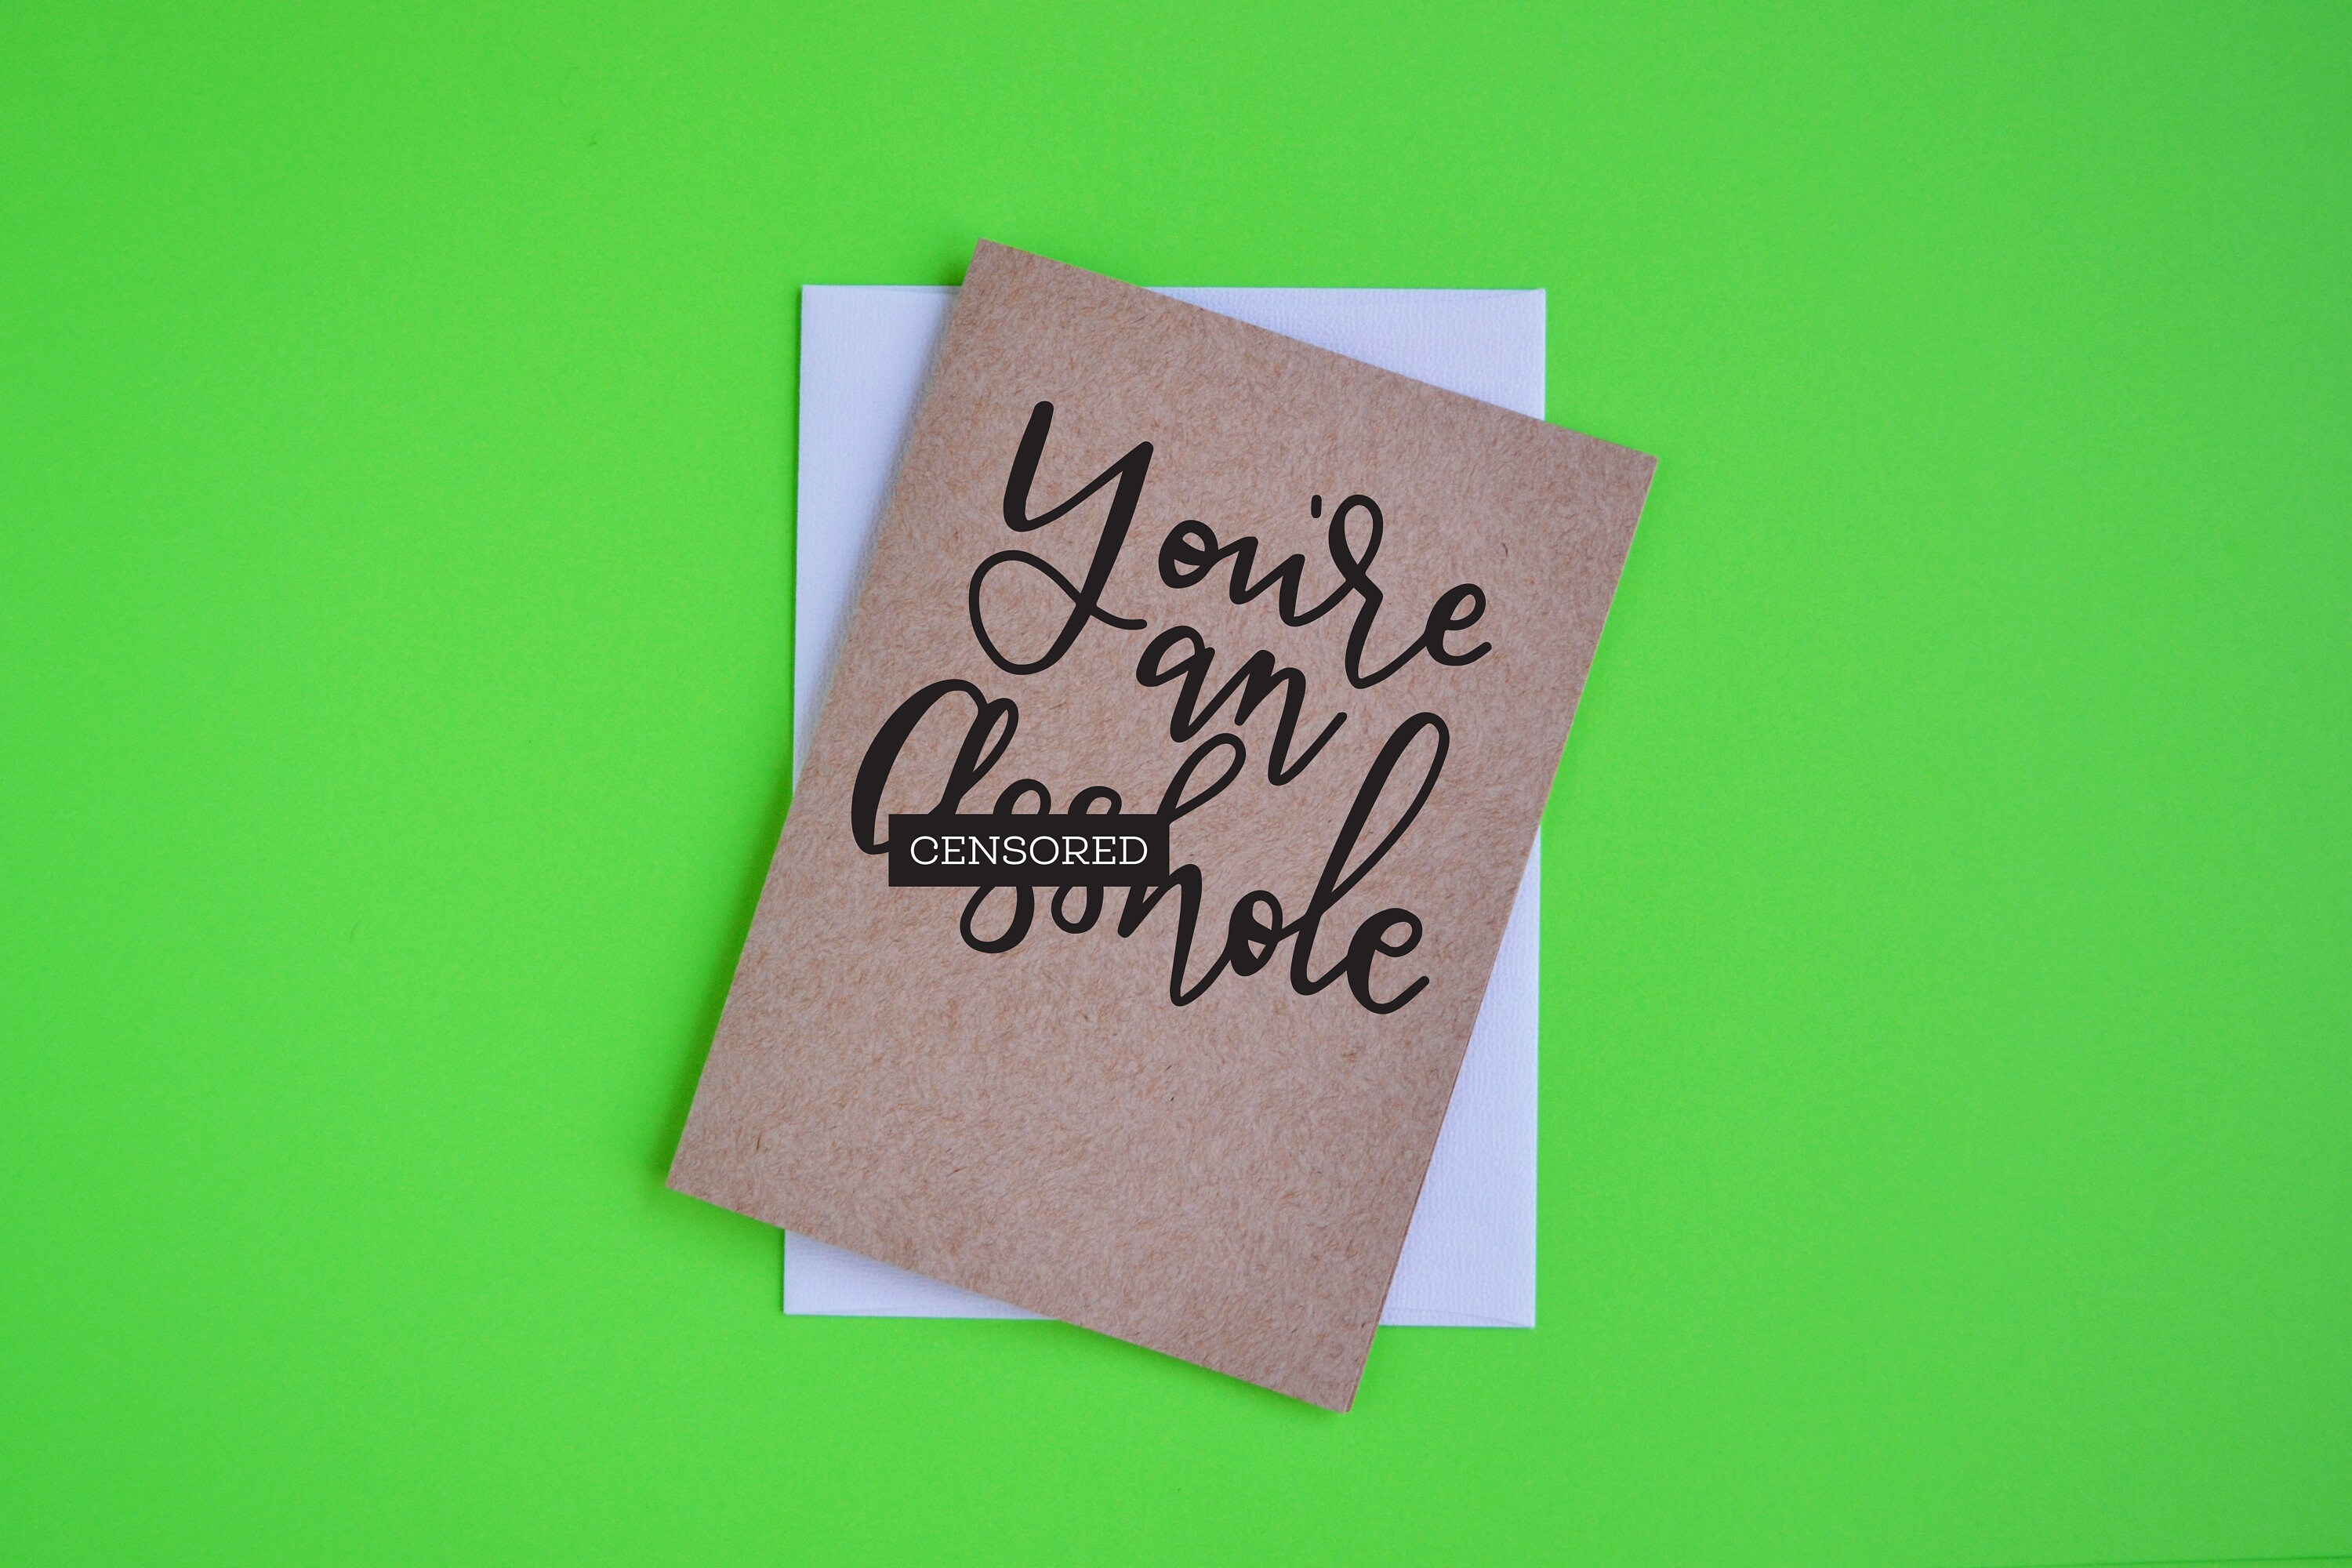 You're
an
Asshole
CENSORED